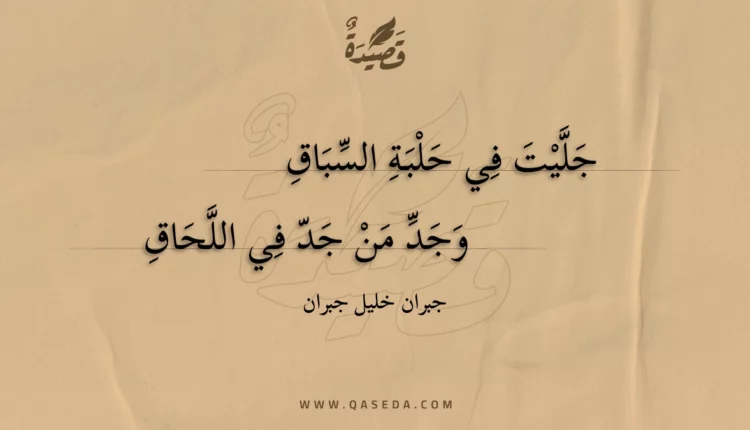 قَصِيْدَةٌ
جَلَّيْتَ فِي حَلْبَةِ السِّبَاقِ
وَجَدِّ مَنْ جَدّ فِي اللَّحَاقِ
جبران خليل جبران
WWW.QASEDA.COM